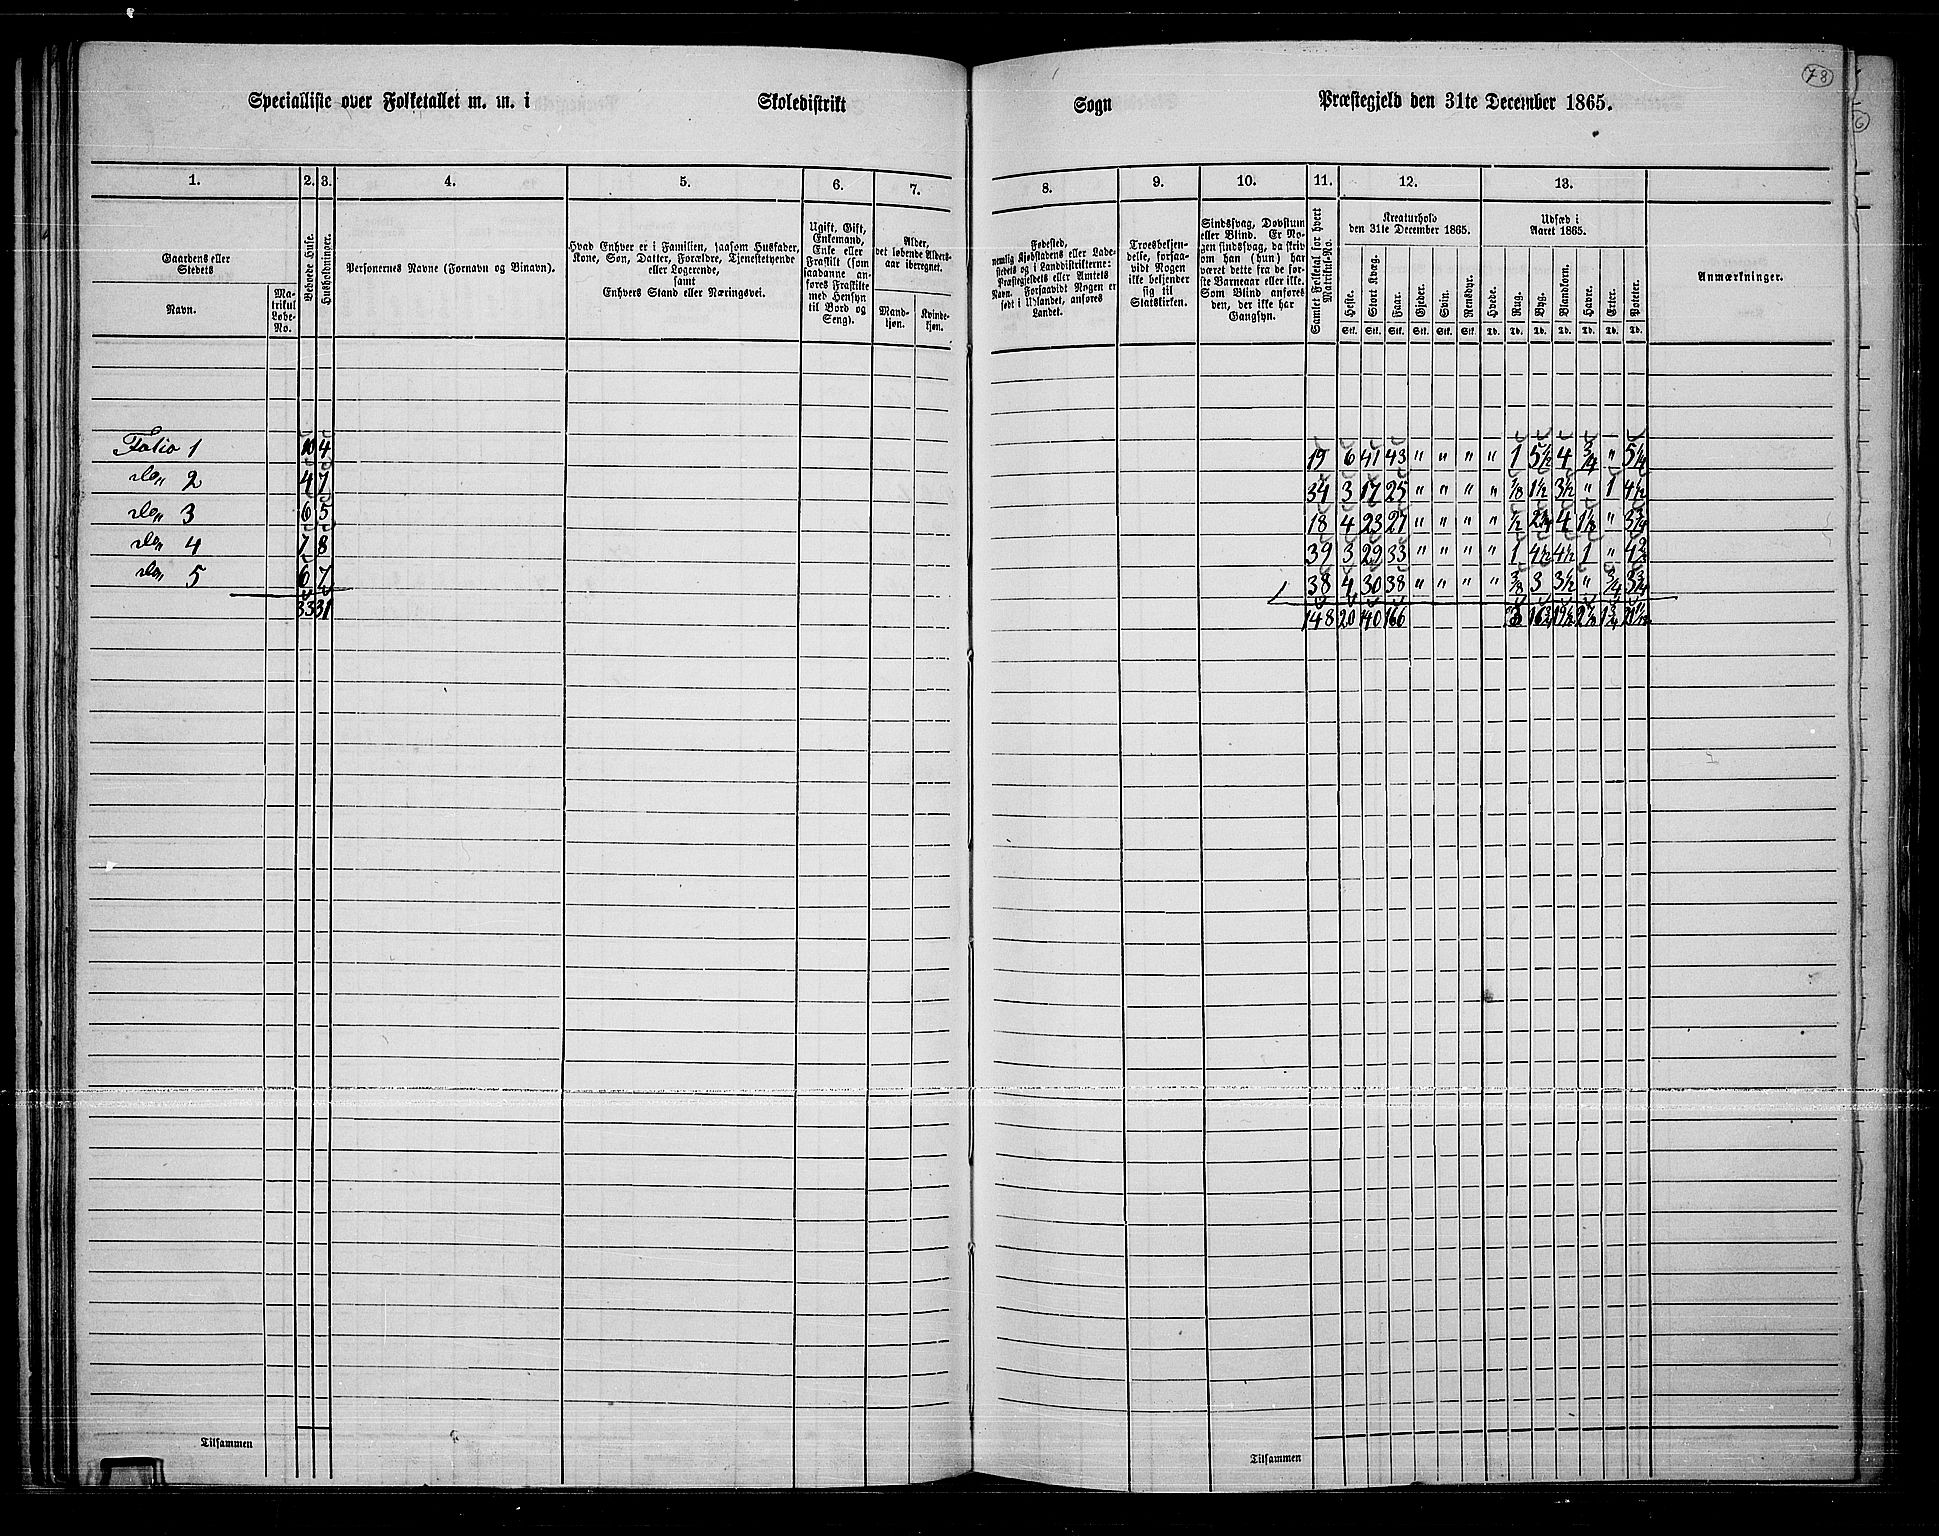 78
6
Specialliste over Folketallet m. m. i Skoledistrikt Sogn Præstegjeld den 31te December 1865.
1. 2. 3. 4. 5. 6. 7. 8. 9. 10. 11. 12. 13.
Gaardens eller Stedets
Navn.
Matrikul Løbe-No.
Beboede Huse.
Husholdninger.
Personernes Navne (Fornavn og Binavn).
Hvad Enhver er i Familien, saasom Husfader,
Kone, Søn, Datter, Forældre, Tjenestetyende
eller Logerende,
samt
Enhvers Stand eller Næringsvei.
Ugift, Gift,
Enkemand,
Enke eller
Fraskilt (som
saadanne an-
føres Fraskilte
med Hensyn
til Bord og
Seng).
Alder,
det løbende Alders-
aar iberegnet.
Mand-
kjøn.
Kvinde-
kjøn.
Fødested,
nemlig Kjøbstadens eller Lade-
stedets og i Landdistrikterne:
Præstegjeldets eller Amtets
Navn. Forsaavidt Nogen er
født i Udlandet, anføres
Landet.
Troesbekjen-
delse, forsaa-
vidt Nogen
ikke bekjender
sig til
Statskirken.
Sindssvag, Døvstum
eller Blind. Er No-
gen sindssvag, da skriv
om han (hun) har
været dette fra de før-
ste Barneaar eller ikke.
Som Blind anføres
den, der ikke har
Gangsyn.
Samlet Folketal for hvert
Matrikul-No.
Kreaturhold
den 31te December 1865.
Heste. Stort Kvæg. Faar. Gjeder. Svin. Rensdyr.
Stk. Stk. Stk. Stk. Stk. Stk.
Udsæd i
Aaret 1865.
Hvede. Rug. Byg. Blandkorn. Havre. Erter. Poteter.
Td. Td. Td. Td. Td. Td. Td.
Anmærkninger.
Folio 1 10 4 19 6 41 43 " " " " 1 5½ 4 ¾ " 5¼
do " 2 4 7 34 3 17 25 " " " " ⅛ 1½ 3½ " 1 4½
do " 3 6 5 18 4 23 27 " " " " ½ 2¼ 4 1⅛ " 3¾
do " 4 7 8 39 3 29 33 " " " " 1 4½ 4½ 1 "
do " 5 6 7 38 4 30 38 " " " " ⅜ 3 3½ " ¾ 3¾
33 31 148 20 140 166 3 16¾ 19½ 2⅞ 1¾
Tilsammen
Tilsammen